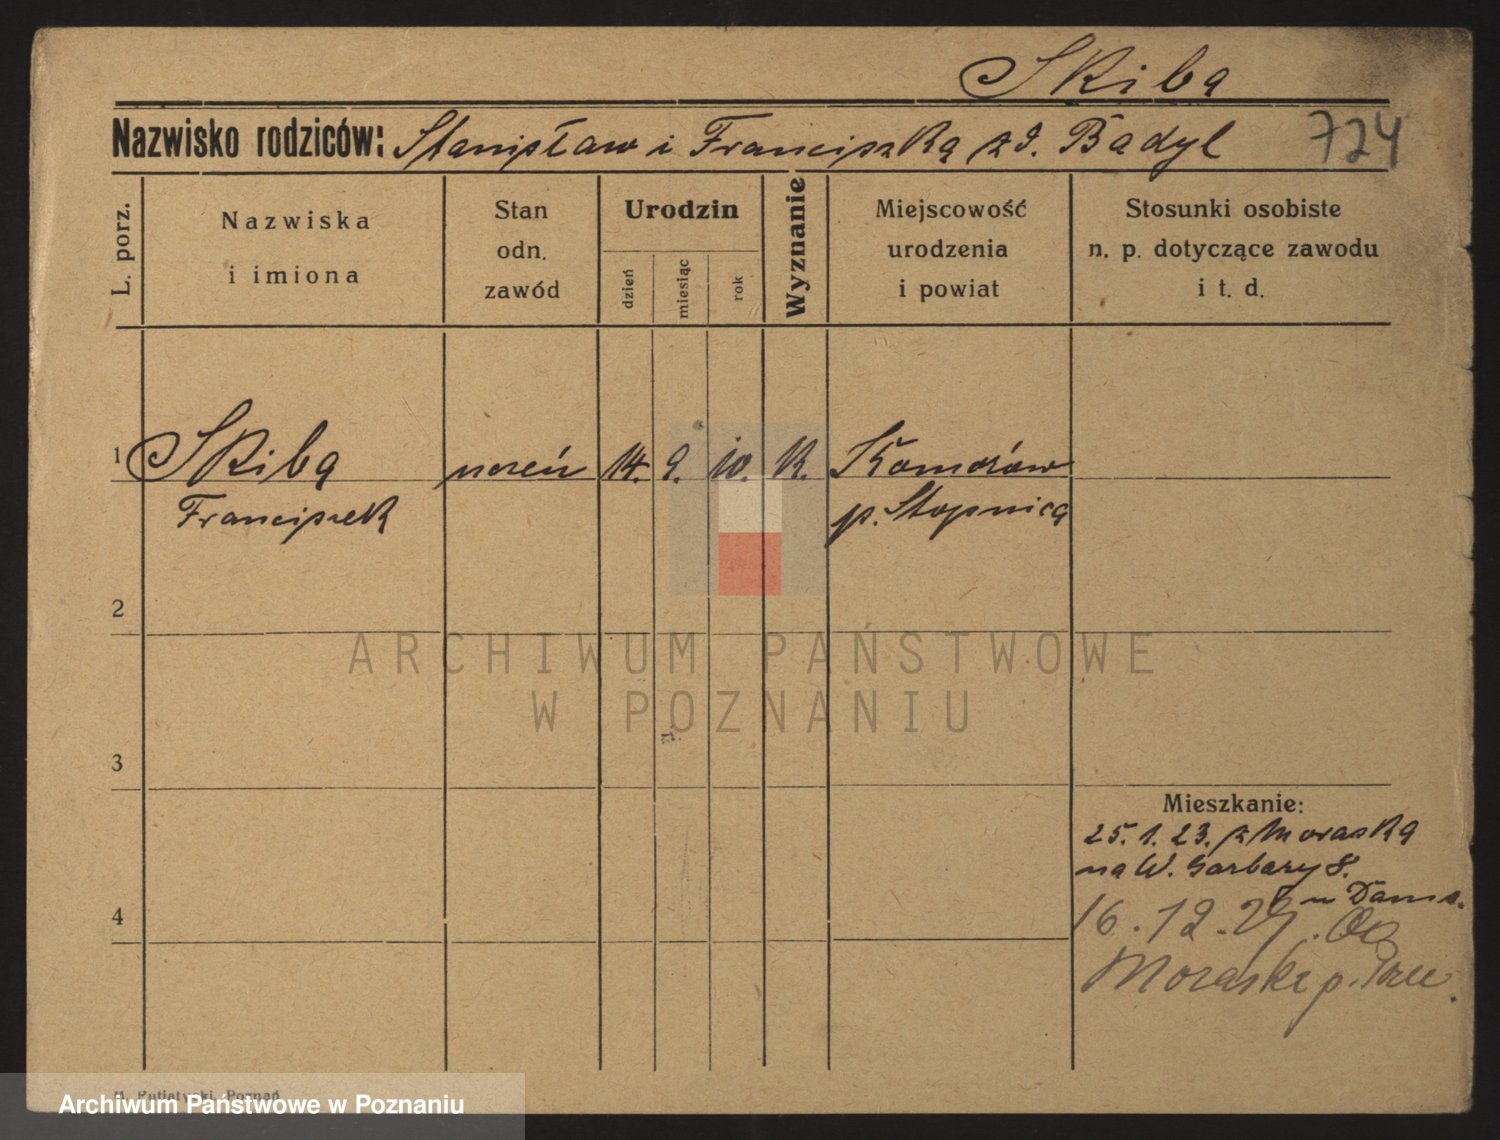 Skiba
Nazwisko rodziców: Stanisław i Franciszka z d. Badyl 724
L. porz.
Nazwiska
i imiona
Stan
odn.
zawód
Urodzin
dzień
miesiąc
rok
Wyznanie
Miejscowość
urodzenia
i powiat
Stosunki osobiste
n. p. dotyczące zawodu
i t. d.
1 Skiba uczeń 14. 9. 10. K. Komorów
Franciszek p. Stopnica
2
ARCHIWUM PAŃSTWOWE
W POZNANIU
3
Mieszkanie:
25.1.23. z Moraska
na W. Garbary 8.
4
16.12.
Moraske p.
Poznań
Archiwum Państwowe w Poznaniu